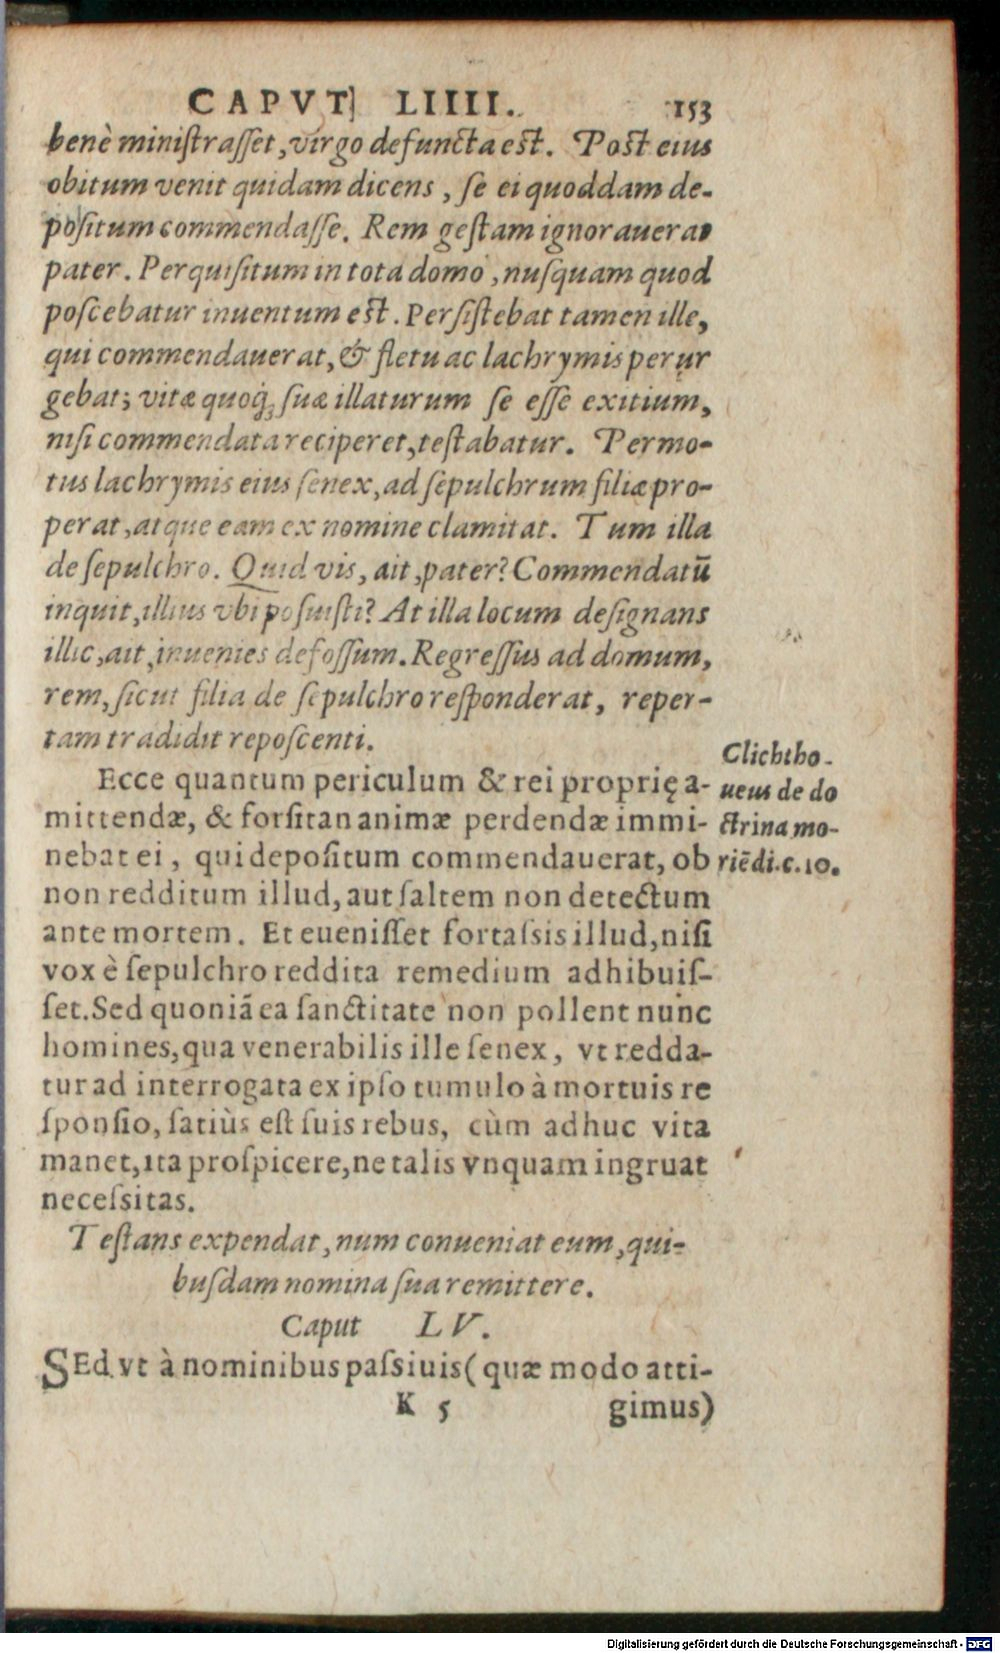 CAPVT LIIII. 153
benè miniſtraſſet, virgo defuncta est. Post eius
obitum venit quidam dicens, ſe ei quoddam de-
poſitum commendaſſe. Rem geſtam ignorauerat
pater. Perquiſitum in tota domo, nuſquam quod
poſcebatur inuentum est. Perſiſtebat tamen ille,
qui commendauerat, & fletu ac lachrymis perur
gebat; vitæ quoq́; ſuæ illaturum ſe eſſe exitium,
niſi commendata reciperet, teſtabatur. Permo-
tus lachrymis eius ſenex, ad ſepulchrum filiæ pro-
perat, atque eam ex nomine clamitat. Tum illa
de ſepulchro. Quid vis, ait, pater? Commendatū
inquit, illius vbi poſuiſti? At illa locum deſignans
illic, ait, inuenies defoſſum. Regreſſus ad domum,
rem, ſicut filia de ſepulchro reſponderat, reper-
tam tradidit repoſcenti.
Ecce quantum periculum & rei proprię a-
mittendæ, & forſitan animæ perdendæ immi-
nebat ei, qui depoſitum commendauerat, ob
non redditum illud, aut ſaltem non detectum
ante mortem. Et eueniſſet fortaſsis illud, niſi
vox è ſepulchro reddita remedium adhibuiſ-
ſet. Sed quoniā ea ſanctitate non pollent nunc
homines, qua venerabilis ille ſenex, vt redda-
tur ad interrogata ex ipſo tumulo à mortuis re
ſponſio, ſatiùs eſt ſuis rebus, cùm adhuc vita
manet, ita proſpicere, ne talis vnquam ingruat
neceſsitas.
Clichtho-
ueus de do
ctrina mo-
riēdi. c. 10.
Teſtans expendat, num conueniat eum, qui-
buſdam nomina ſua remittere.
Caput LV.
SEd vt à nominibus paſsiuis (quæ modo atti-
K 5 gimus)
Digitalisierung gefördert durch die Deutsche Forschungsgemeinschaft - DFG